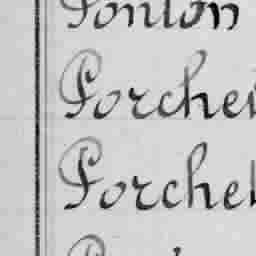 Ponton
Porcher
Porchet